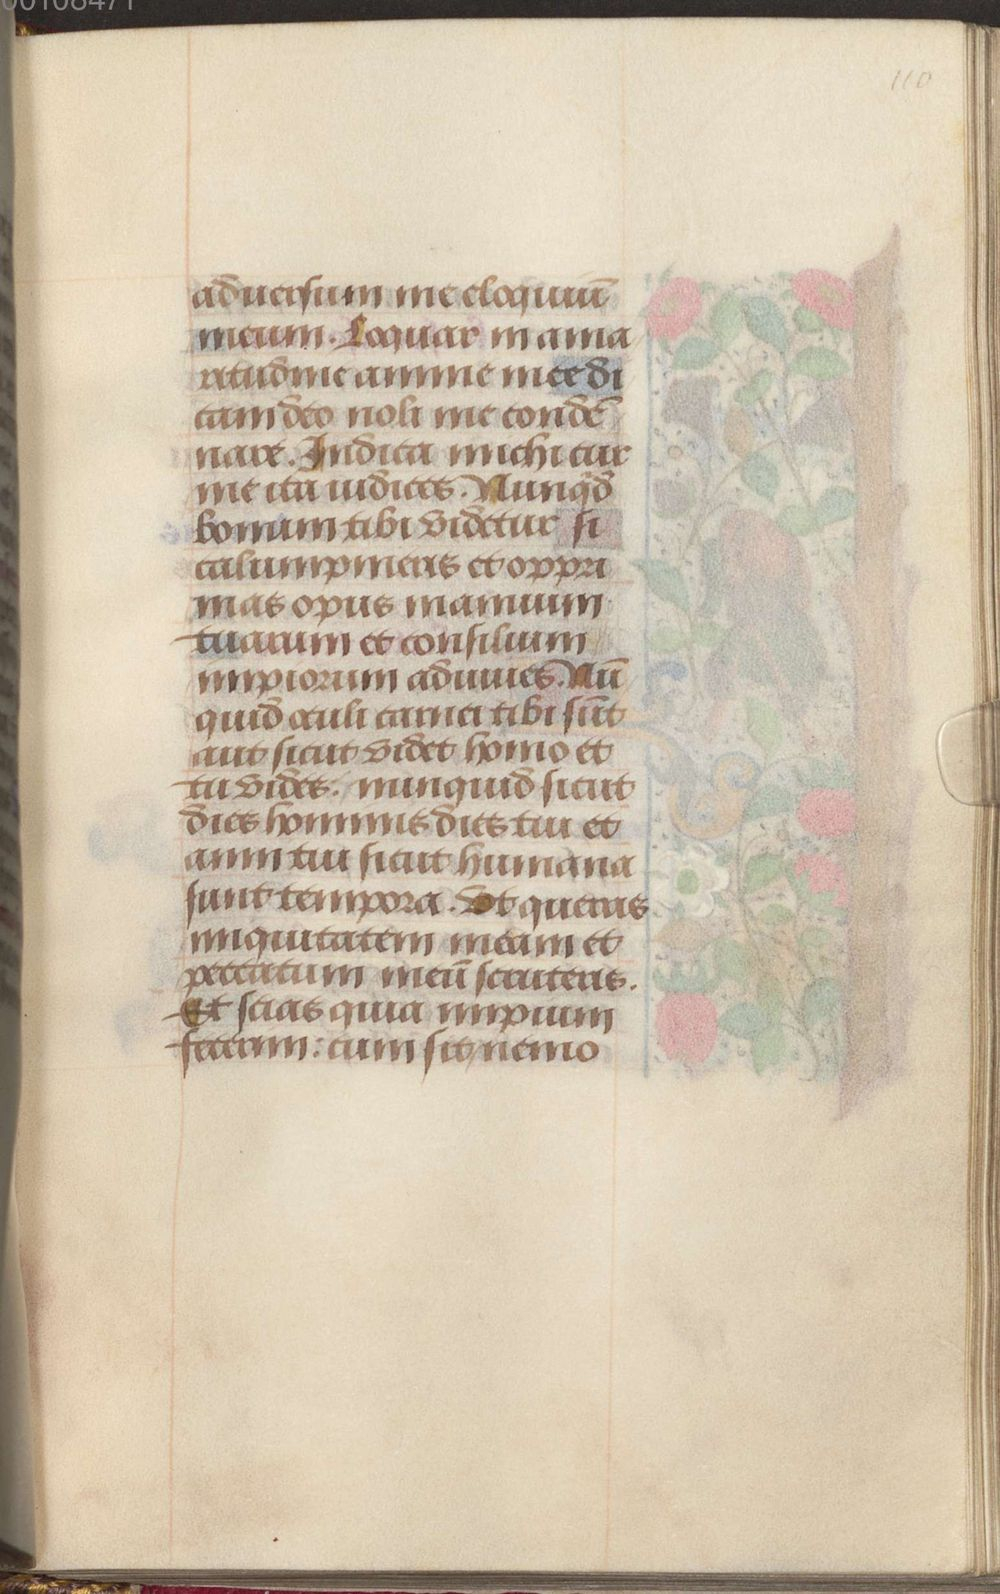 00108471
110
aduersum me eloquiū
meum. Loquar in ama
ritudine anime mee di
cam deo noli me condē
nare. Indica michi cur
me ita iudices. Nunqd̄
bonum tibi videtur si
calumpnieris et oppri
mas opus manuum
tuarum et consilium
impiorum adiuues. Nū
quid oculi carnei tibi sūt
aut sicut videt homo et
tu vides. nunquid sicut
dies hominis dies tui et
anni tui sicut humana
sunt tempora. Vt queras
iniquitatem meam et
peccatum meū scruteris.
Et scias quia impium
fecerim: cum sit nemo